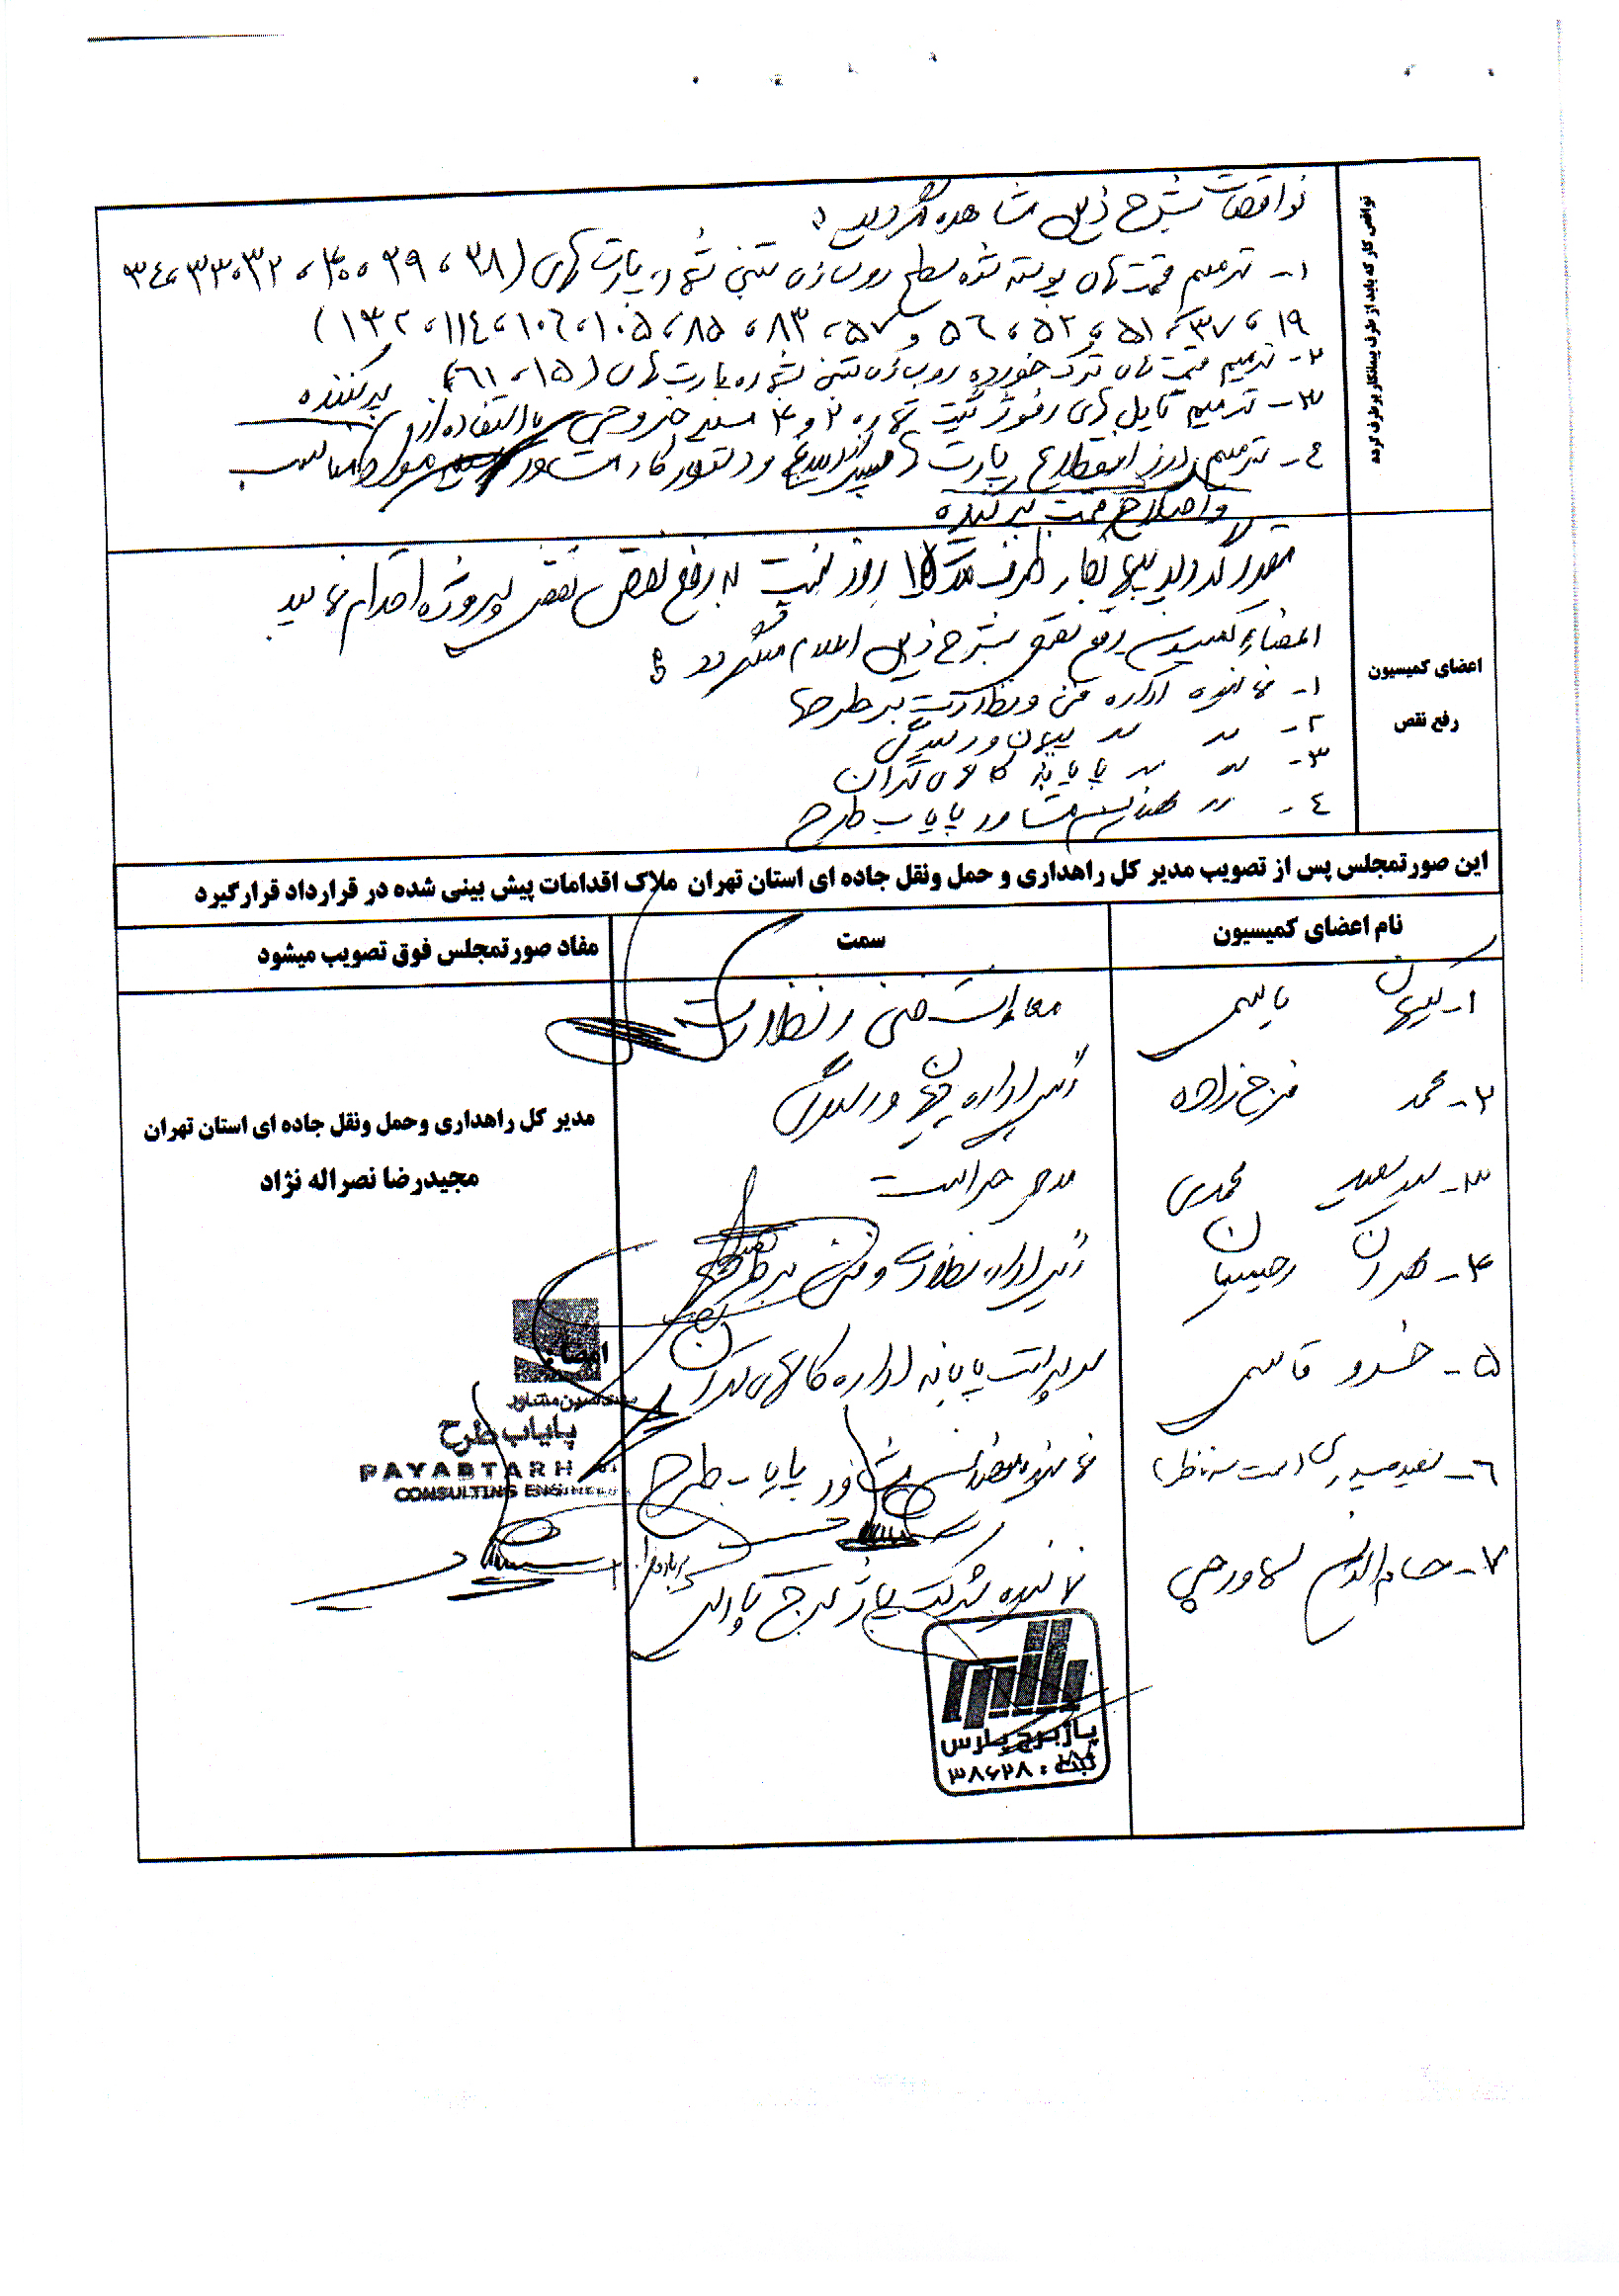 نواقص کار که باید از طرف پیمانکار برطرف گردد
نواقصات بشرح ذیل مشاهده گردید :
۱- ترمیم قسمت های پوسته شده سطح روسازی بتنی شماره پارت های (۳۸، ۲۹، ۳۰، ۳۲، ۳۳، ۳۴
۱۹، ۳۷، ۵۱، ۵۲، ۵۶ و ۵۷، ۸۳، ۸۵، ۱۰۵، ۱۰۶، ۱۱۴، ۱۳۲)
۲- ترمیم قسمت های ترک خورده روسازی بتنی شماره پارت های (۱۵، ۶۱)
۳- ترمیم تایل های رفوژ گیت شماره ۲ و ۳ مسیر خروجی با استفاده از پرکننده
۴- ترمیم درز انقطاع پارت ها دستور کار مشاور مواد مناسب
و اصلاح قسمت پرکننده
اعضای کمیسیون
رفع نقص
مقرر گردید پیمانکار ظرف مدت ۱۵ روز نسبت به رفع نقص پروژه اقدام نماید.
اعضاء کمیسیون رفع نقص بشرح ذیل اعلام میگردد :
۱- نماینده اداره فنی و نظارت بر طرحها
۲- " " پیمان و رسیدگی
۳- " " پایانه کالای تهران
۴- " مهندسین مشاور پایاب طرح
این صورتمجلس پس از تصویب مدیر کل راهداری و حمل ونقل جاده ای استان تهران ملاک اقدامات پیش بینی شده در قرارداد قرارگیرد
نام اعضای کمیسیون سمت مفاد صورتمجلس فوق تصویب میشود
۱- کیهان یاسمی معاونت فنی و نظارت
۲- محمد فرخ زاده رئیس اداره پیمان و رسیدگی
مدیر کل راهداری وحمل ونقل جاده ای استان تهران
۳- سید سعید محمدی مدیر حراست
مجیدرضا نصراله نژاد
۴- مهران رحیمیان رئیس اداره نظارت و فنی بر طرحها
امضاء:
۵- خسرو قاسمی مدیریت پایانه اداره کالای تهران
مهندسین مشاور
پایاب طرح
PAYABTARH
CONSULTING ENGINEERS
۶- سعید حیدری نماینده مهندسین مشاور پایاب طرح
۷- حسام الدین نماینده شرکت پاژ برج پارس
پاژ برج پارس
ثبت: ۳۸۶۲۸